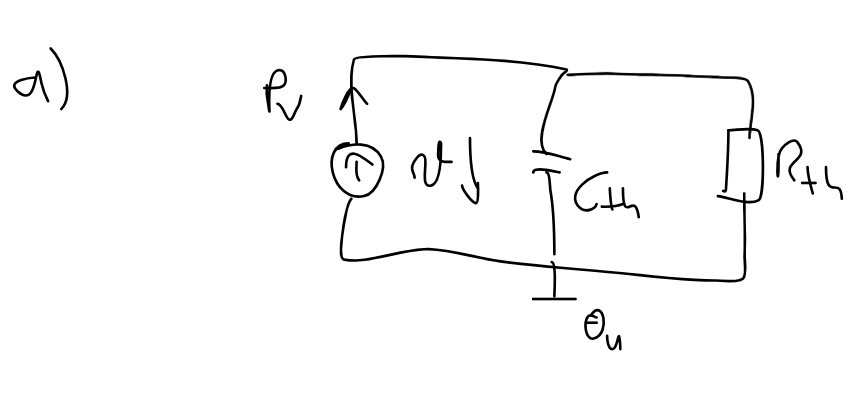 a)
P_V
ϑ↓
C_th
R_th
θ_u